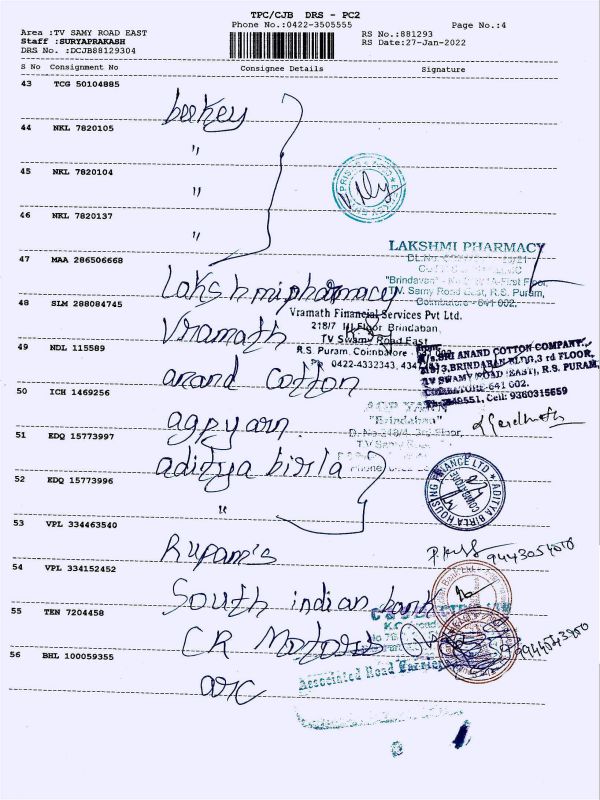 TPC/CJB DRS - PC2
Phone No.:0422-3505555
Page No.:4
Area :TV SAMY ROAD EAST
Staff :SURYAPRAKASH
DRS No. :DCJB88129304
RS No.:881293
RS Date:27-Jan-2022
S No Consignment No Consignee Details Signature
43 TCG 50104885
beekey
44 NKL 7820105
"
45 NKL 7820104
"
46 NKL 7820137
"
47 MAA 286506668
Lakshmipharmacy
LAKSHMI PHARMACY
"Brindavan"
T.V. Samy Road East, R.S. Puram,
Coimbatore - 641 002.
48 SLM 288084745
Vramath
Vramath Financial Services Pvt Ltd.
218/7 III Floor, Brindaban,
TV Swamy Road East
R.S. Puram, Coimbatore
0422-4332343,
49 NDL 115589
anand cotton
SRI ANAND COTTON COMPANY
3, BRINDABAN BLDG, 3 rd FLOOR,
TV SWAMY ROAD (EAST), R.S. PURAM,
COIMBATORE-641 002.
Cell: 9360315659
50 ICH 1469256
agpyarn.
AGP YARN
"Brindaban"
3rd Floor,
51 EDQ 15773997
aditya birla
52 EDQ 15773996
"
ADITYA BIRLA HOUSING FINANCE LTD
COIMBATORE
53 VPL 334463540
Rupam's
54 VPL 334152452
South indian bank
55 TEN 7204458
CR Motors
56 BHL 100059355
arc
Associated Road Carriers